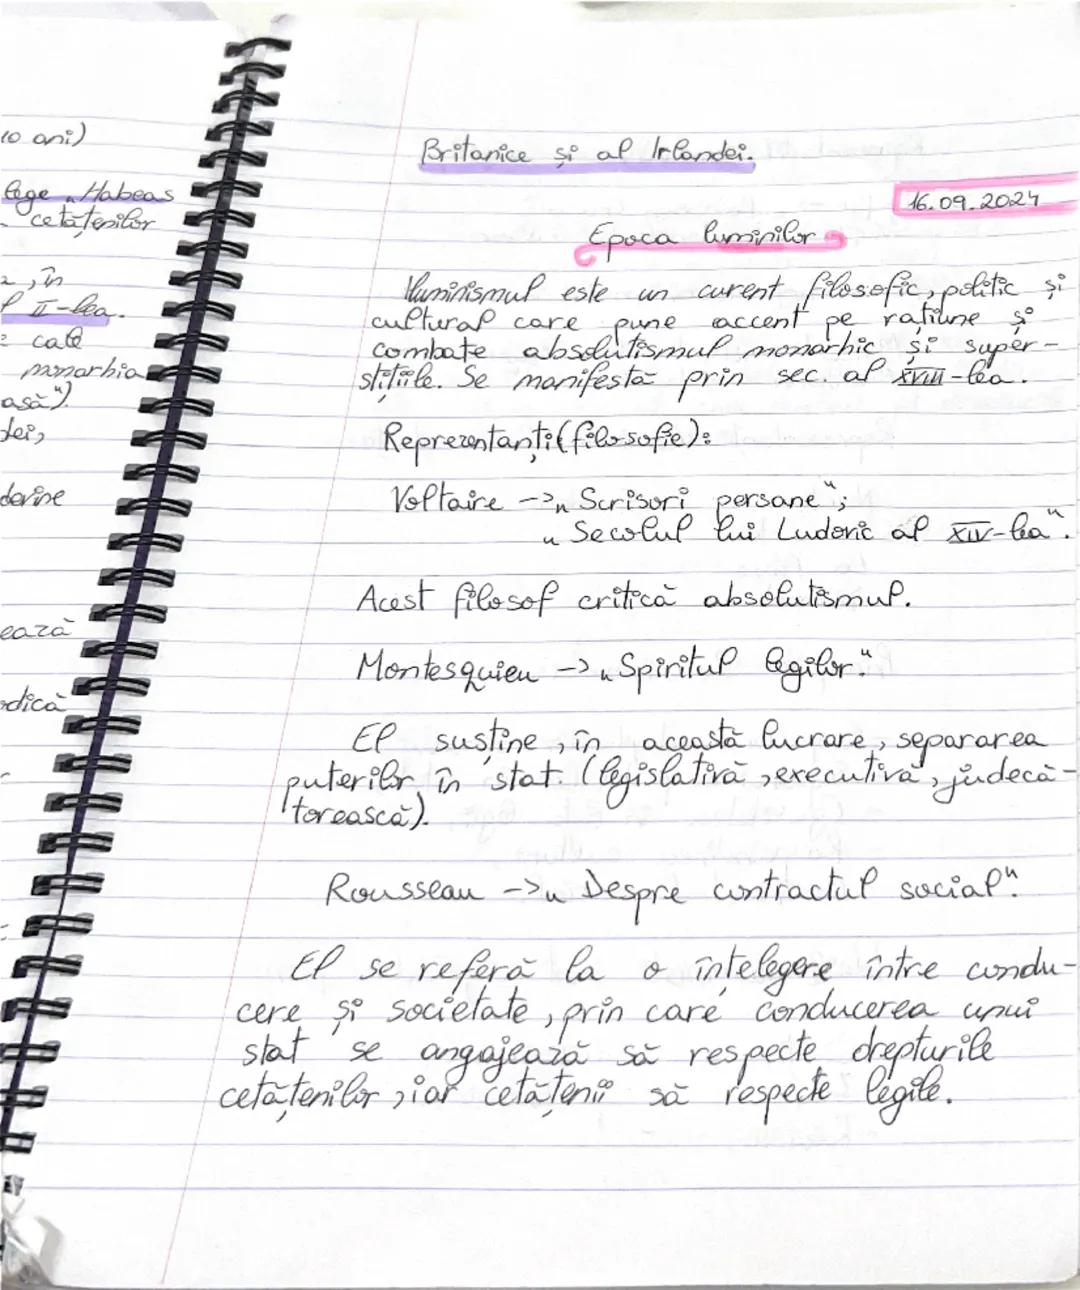 10 ani)
lege „Habeas
cetățenilor
în
II-lea.
cale
monarhia
asă").
lei,
devine
ează
dică
Britanice și al Irlandei.
16.09.2024
Epoca luminilor
Iluminismul este un curent filosofic, politic și
cultural care pune accent pe rațiune și
combate absolutismul monarhic și super-
stițiile. Se manifestă prin sec. al XVIII-lea.
Reprezentanți(filosofie):
Voltaire -> „Scrisori persane";
„Secolul lui Ludovic al XIV-lea".
Acest filosof critică absolutismul.
Montesquieu -> „Spiritul legilor"
El susține, în această lucrare, separarea
puterilor în stat. (legislativă, executivă, judecă-
torească).
Rousseau -> „Despre contractul social".
El se referă la o înțelegere între condu-
cere și societate, prin care conducerea unui
stat se angajează să respecte drepturile
cetățenilor, iar cetățenii să respecte legile.